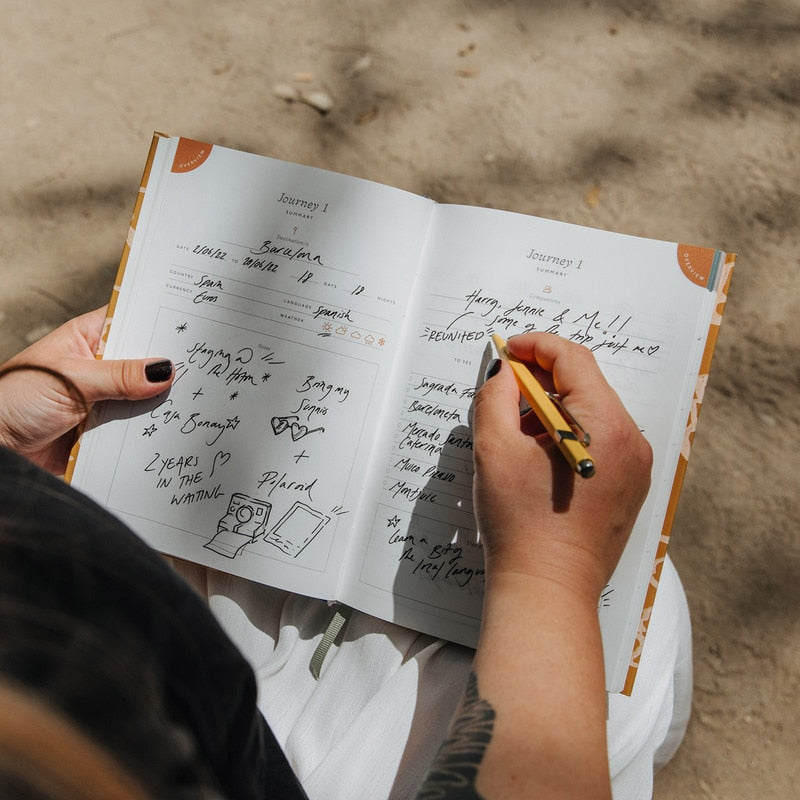 OVERVIEW
Journey 1
SUMMARY
Destination/s
Barcelona
DATE 2/06/22 TO 20/06/22 18 DAYS 18 NIGHTS
COUNTRY Spain LANGUAGE Spanish
CURRENCY Euros WEATHER
Notes
Staying @
the Hoxton
+
Casa Bonay
2 YEARS
IN THE
WAITING
Bring my
Sunnis
+
Polaroid
OVERVIEW
Journey 1
SUMMARY
Companions
Harry, Jennie & Me!!
some of the trip just me
REUNITED
TO SEE
Sagrada
Barceloneta
Mercado
Caterina
Museo Picasso
Montjuic
Learn a Bit of
the local